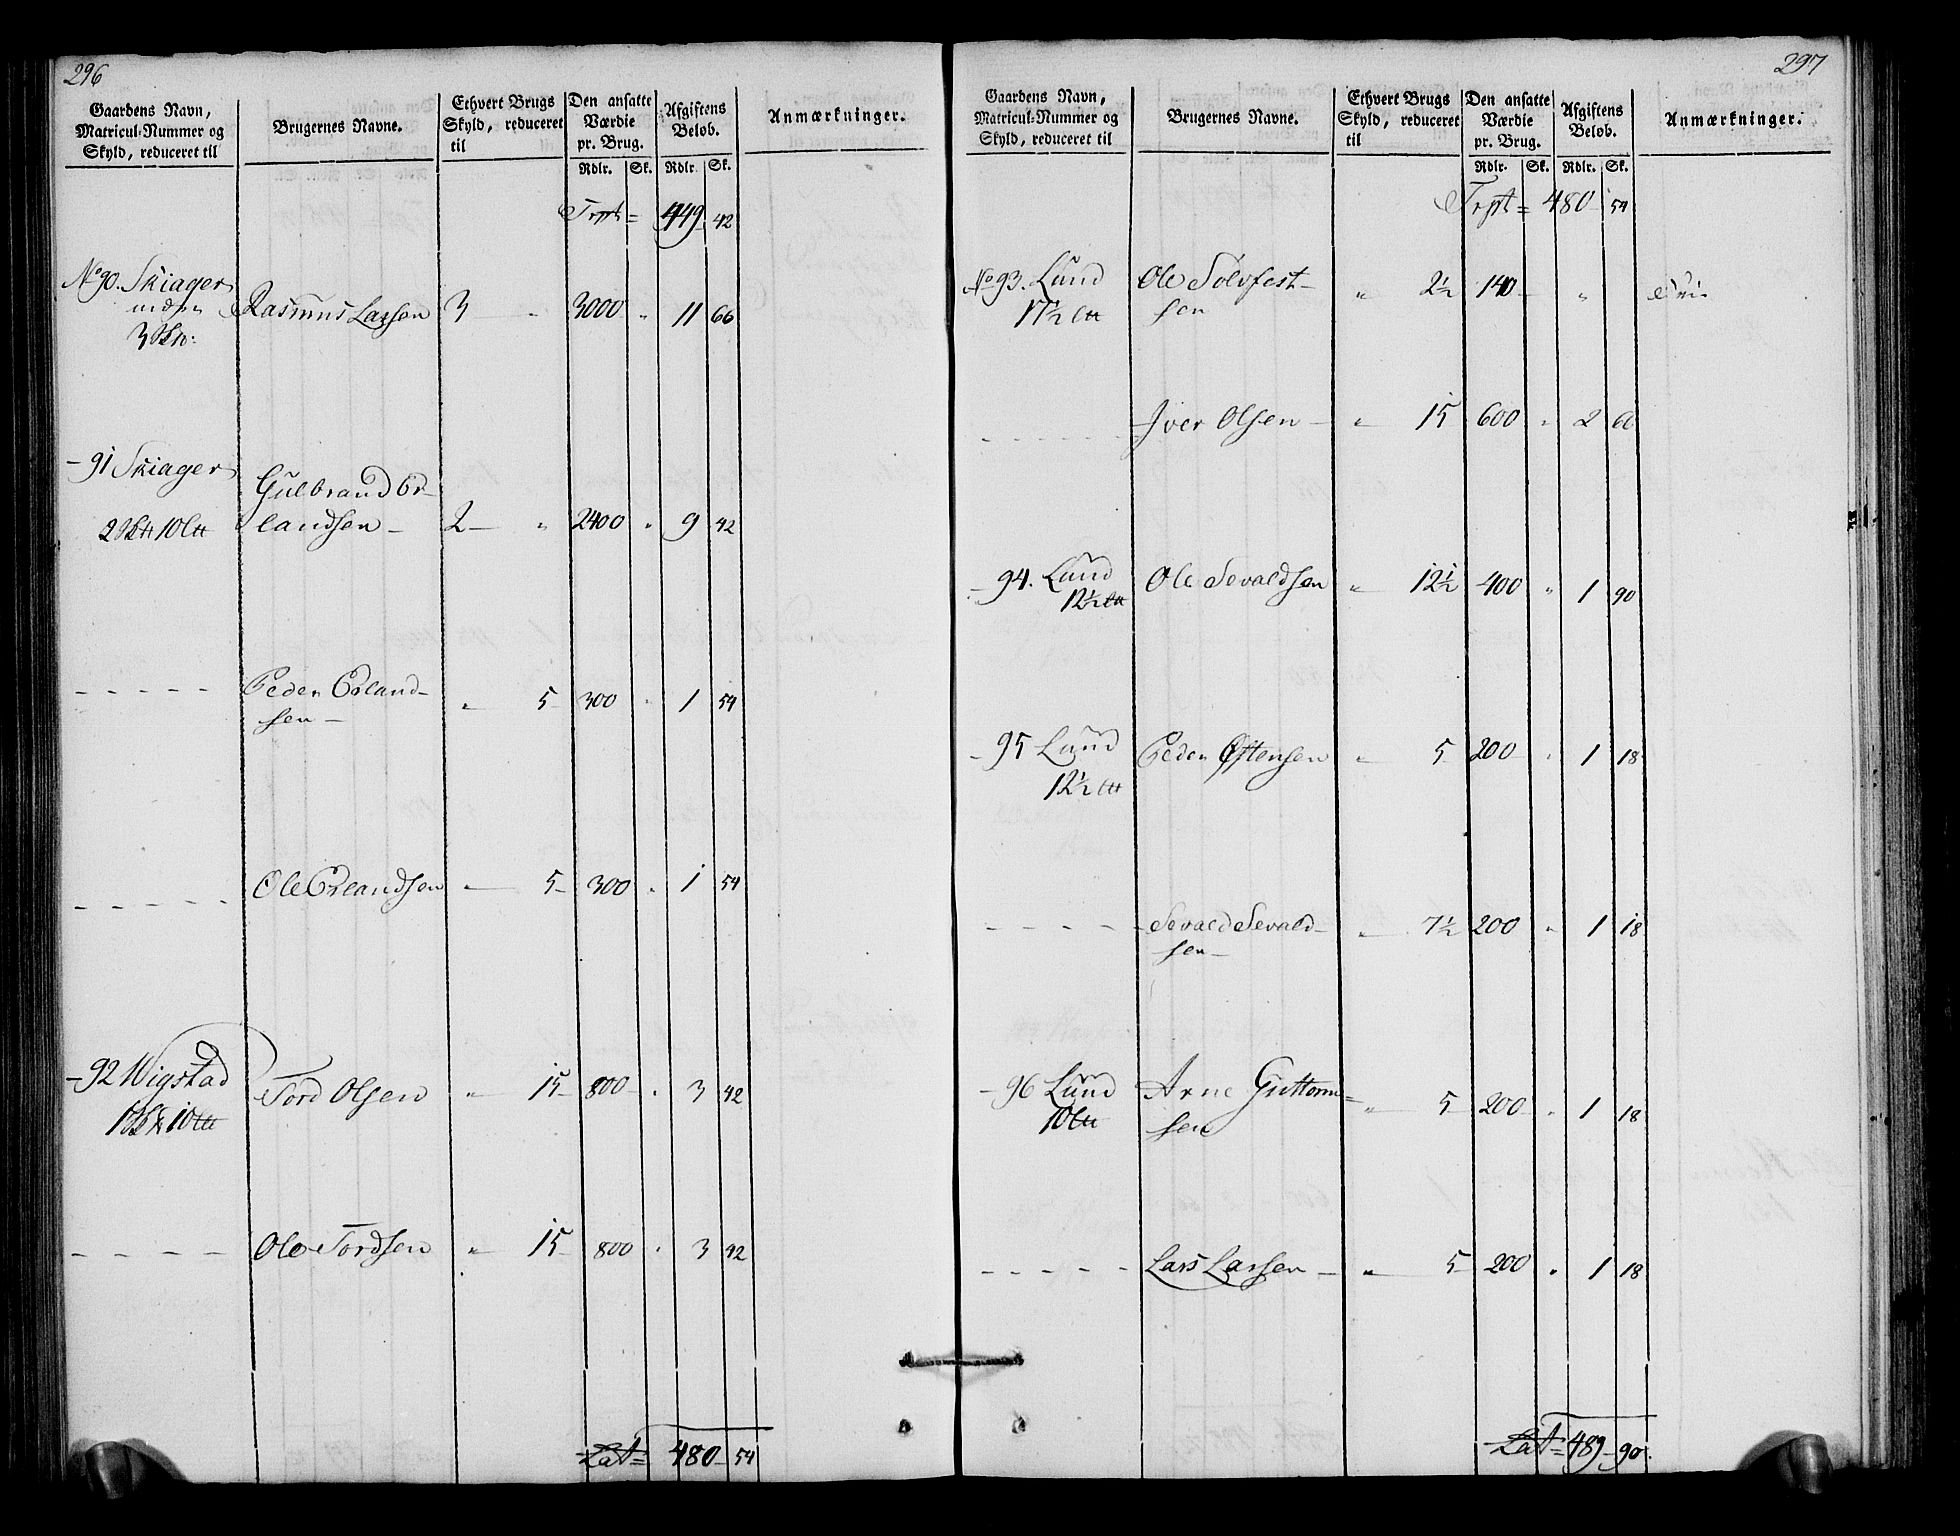 296
Gaardens Navn, Matricul-Nummer og Skyld, reduceret til
Brugernes Navne.
Ethvert Brugs Skyld, reduceret til
Den ansatte Værdie pr. Brug.
Afgiftens Beløb.
Anmærkninger.
Rdlr. Sk. Rdlr. Sk.
Trpt = 449 42
No 90. Skiager
3 Rasmus Larsen 3 " 3000 " 11 66
- 91 Skiager Gulbrand Er-
2 10 landsen - 2 - " 2400 " 9 42
- - - - - Peder Erland- " 5 300 " 1 54
sen -
- - - - - Ole Erlandsen " 5 300 " 1 54
- 92 Wigstad Tord Olsen " 15 800 " 3 42
1 10
- - - - Ole Tordsen " 15 800 " 3 42
Lat = 480 54
297
Gaardens Navn, Matricul-Nummer og Skyld, reduceret til
Brugernes Navne.
Ethvert Brugs Skyld, reduceret til
Den ansatte Værdie pr. Brug.
Afgiftens Beløb.
Anmærkninger.
Rdlr. Sk. Rdlr. Sk.
Trpt = 480 54
No 93. Lund Ole Sølvfest- " 2½ 140 " fri
17½ sen
- - - - - Iver Olsen - " 15 600 " 2 60
- 94. Lund Ole Sevaldsen " 12½ 400 " 1 90
12½
- 95 Lund Peder Østensen " 5 200 " 1 18
12½
- - - - - Sevald Sevald- " 7½ 200 " 1 18
sen -
- 96 Lund Arne Guttorm= " 5 200 " 1 18
10 sen
- - - - - Lars Larsen - " 5 200 " 1 18
Lat = 489 90.